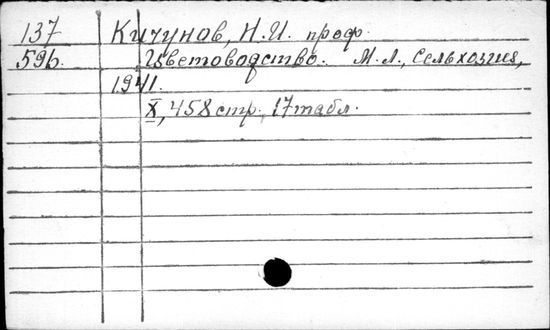 137 Кичунов, Н.И. проф.
596. Цветоводство. М.Л., Сельхозгиз,
1941.
X, 458 стр., 17 табл.